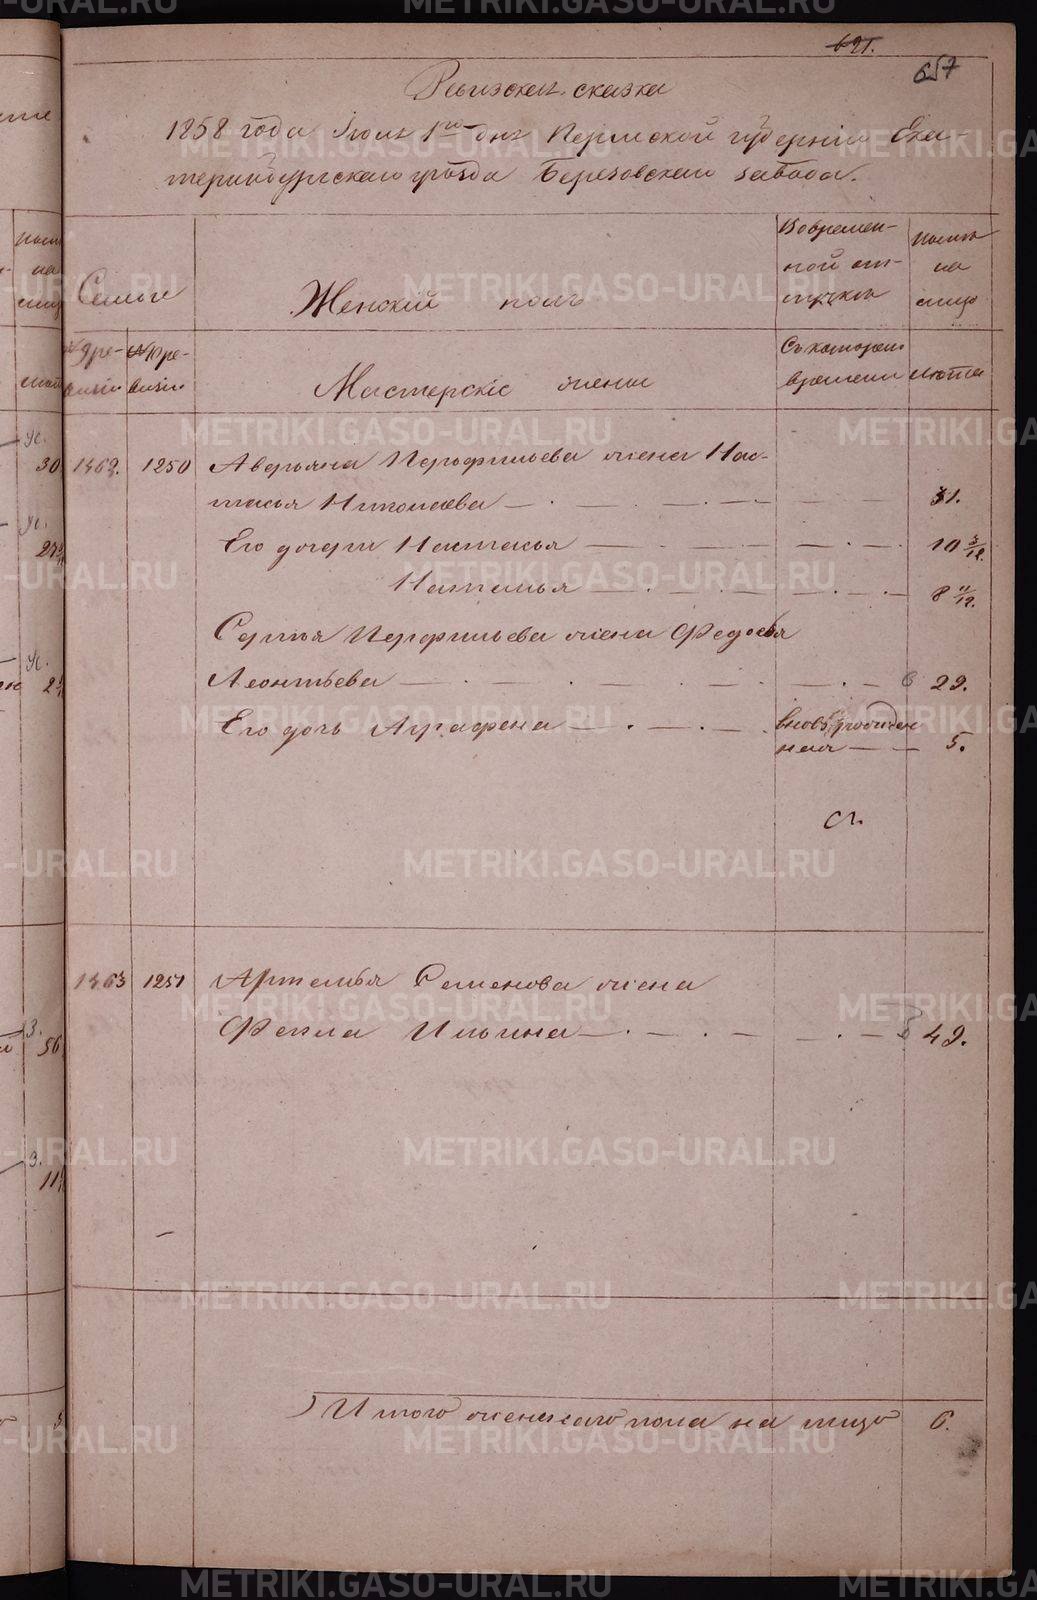 621.
657
Ревизская сказка
1858 года Июня 1го дня Пермской губернии Ека-
теринбургскаго уезда Березовскаго завода.
Семьи
Женский пол
Во времен-
ной от-
лучке
Ныне
на
лицо
№ 9 ре-
визии
№ 10 ре-
визии
Мастерские жены
С котораго
времени
лета
1250
Аверьяна Перфильева жена Нас-
тасья Николаева
31.
Его дочери Настасья
10 3/12.
Наталья
8 11/12.
Сергея Перфильева жена Федосья
Леонтьева
29.
Его дочь Аграфена
вновь рожден
ная
5.
1363
1251
Артемья Семенова жена
Фекла Ильина
49.
Итого женскаго пола на лицо
6.
METRIKI.GASO-URAL.RU